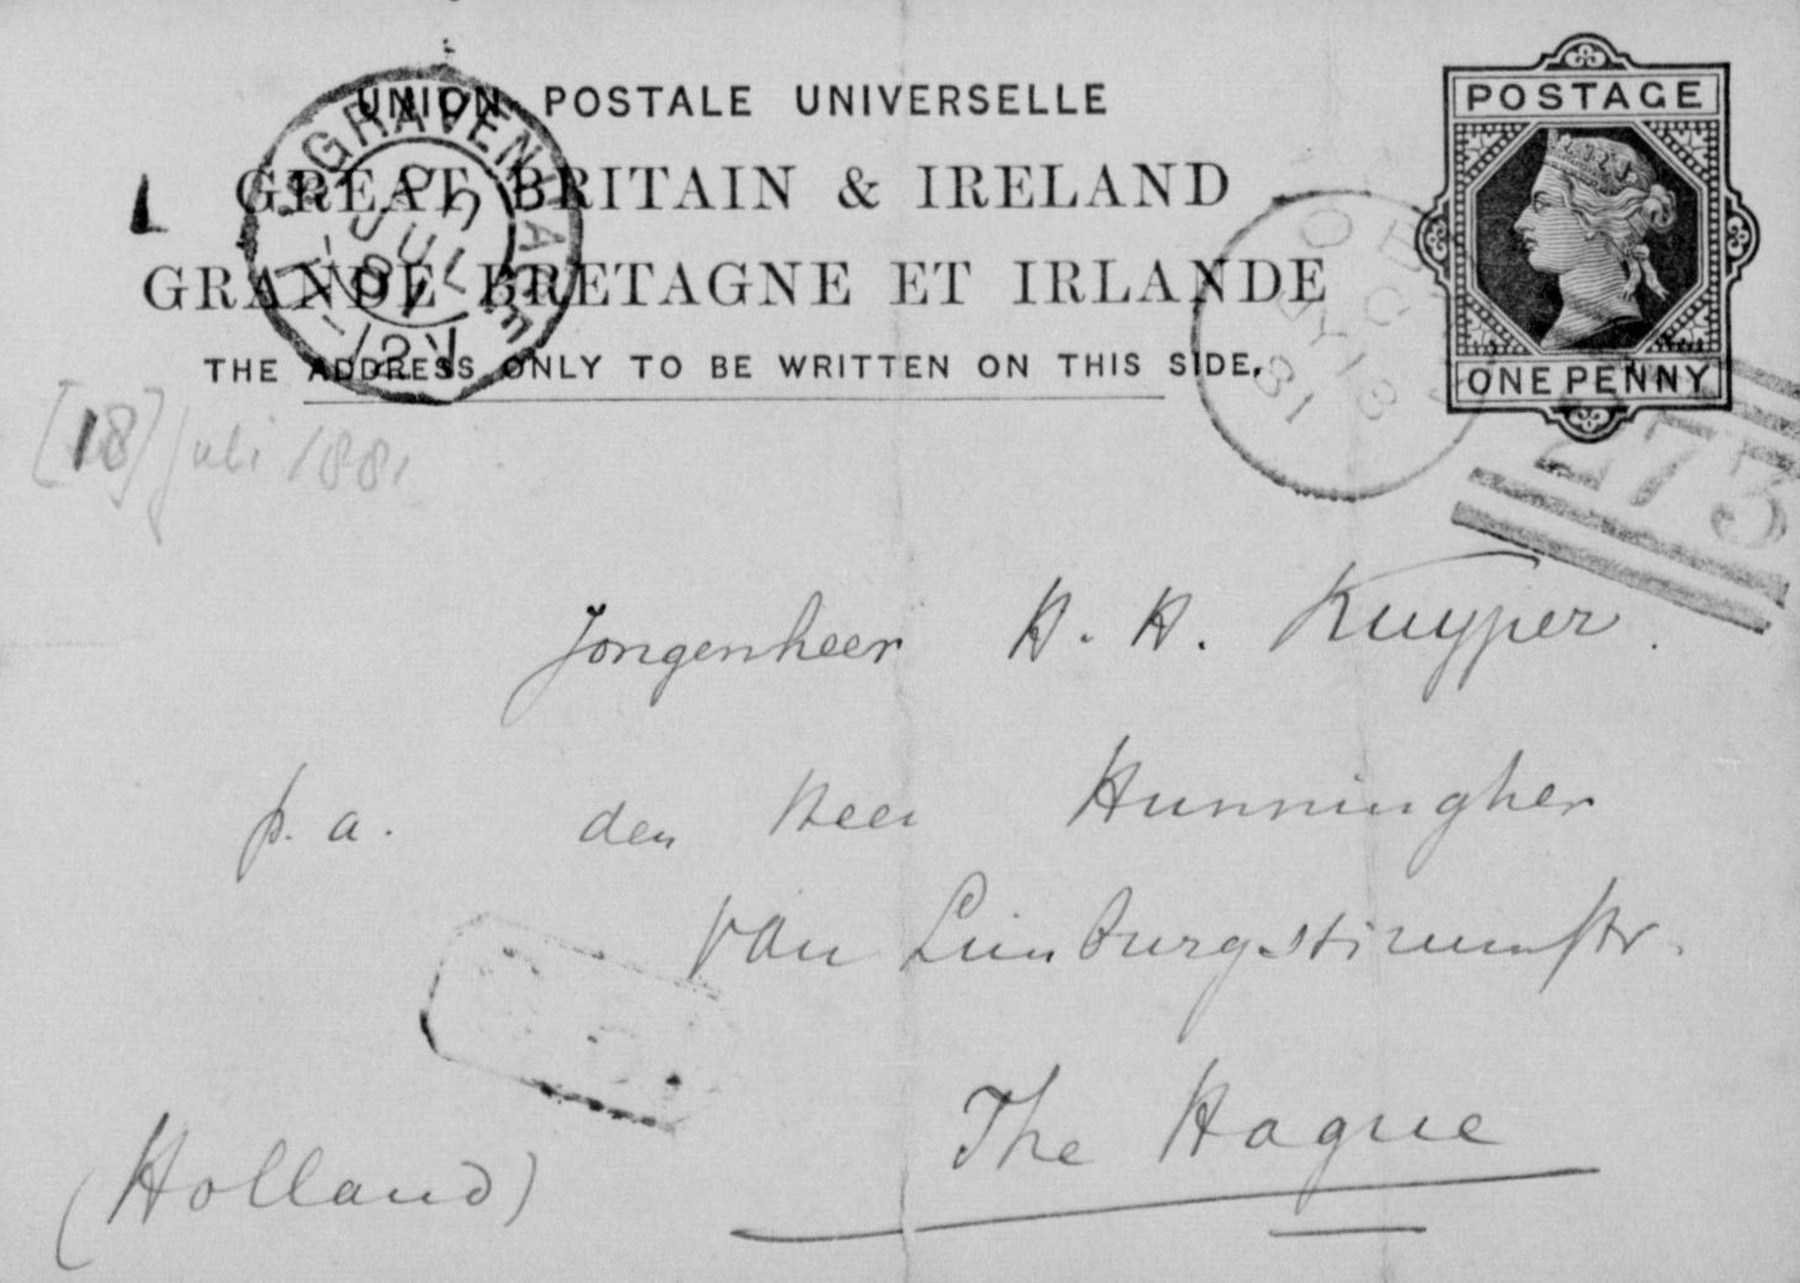 UNION POSTALE UNIVERSELLE
POSTAGE
GREAT BRITAIN & IRELAND
GRANDE BRETAGNE ET IRLANDE
THE ADDRESS ONLY TO BE WRITTEN ON THIS SIDE.
ONE PENNY
L
'SGRAVENHAGE
JUL
81
12V
C
JY 18
81
273
[18] juli 1881
Jongenheer H. H. Kuyper.
p. a. den Heer Hunningher
van Limburgstirumstr.
The Hague
(Holland)